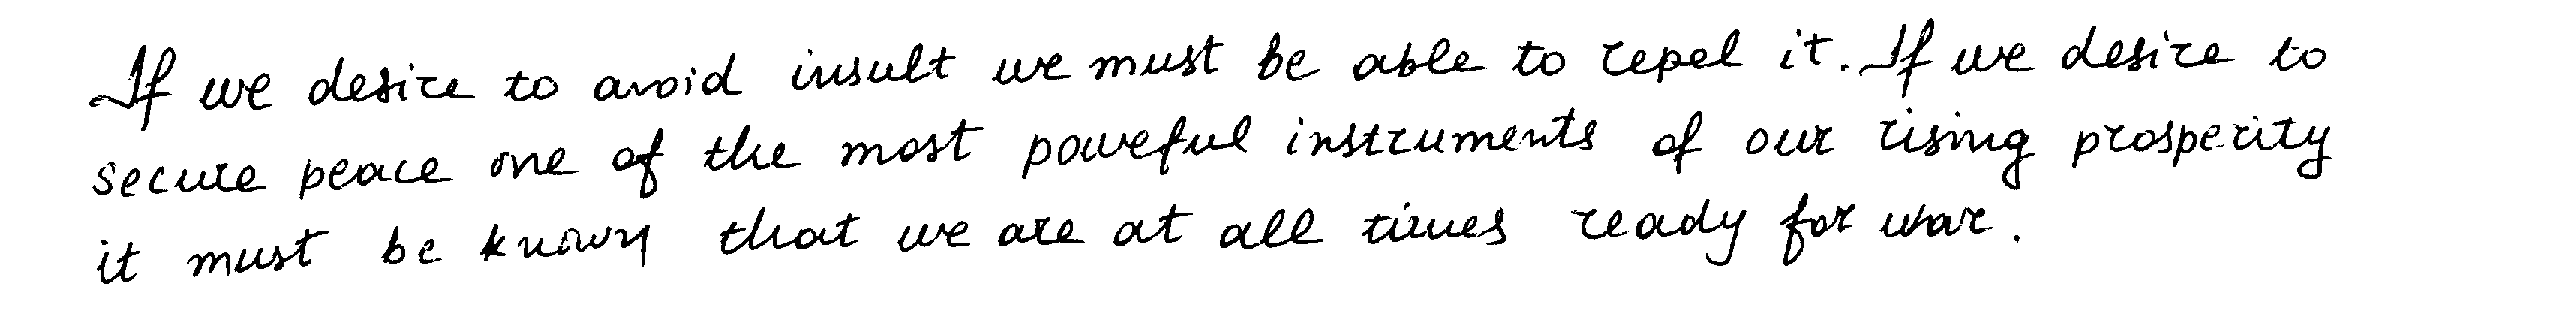 If we desire to avoid insult we must be able to repel it. If we desire to
secure peace one of the most poweful instruments of our rising prosperity
it must be known that we are at all times ready for war.